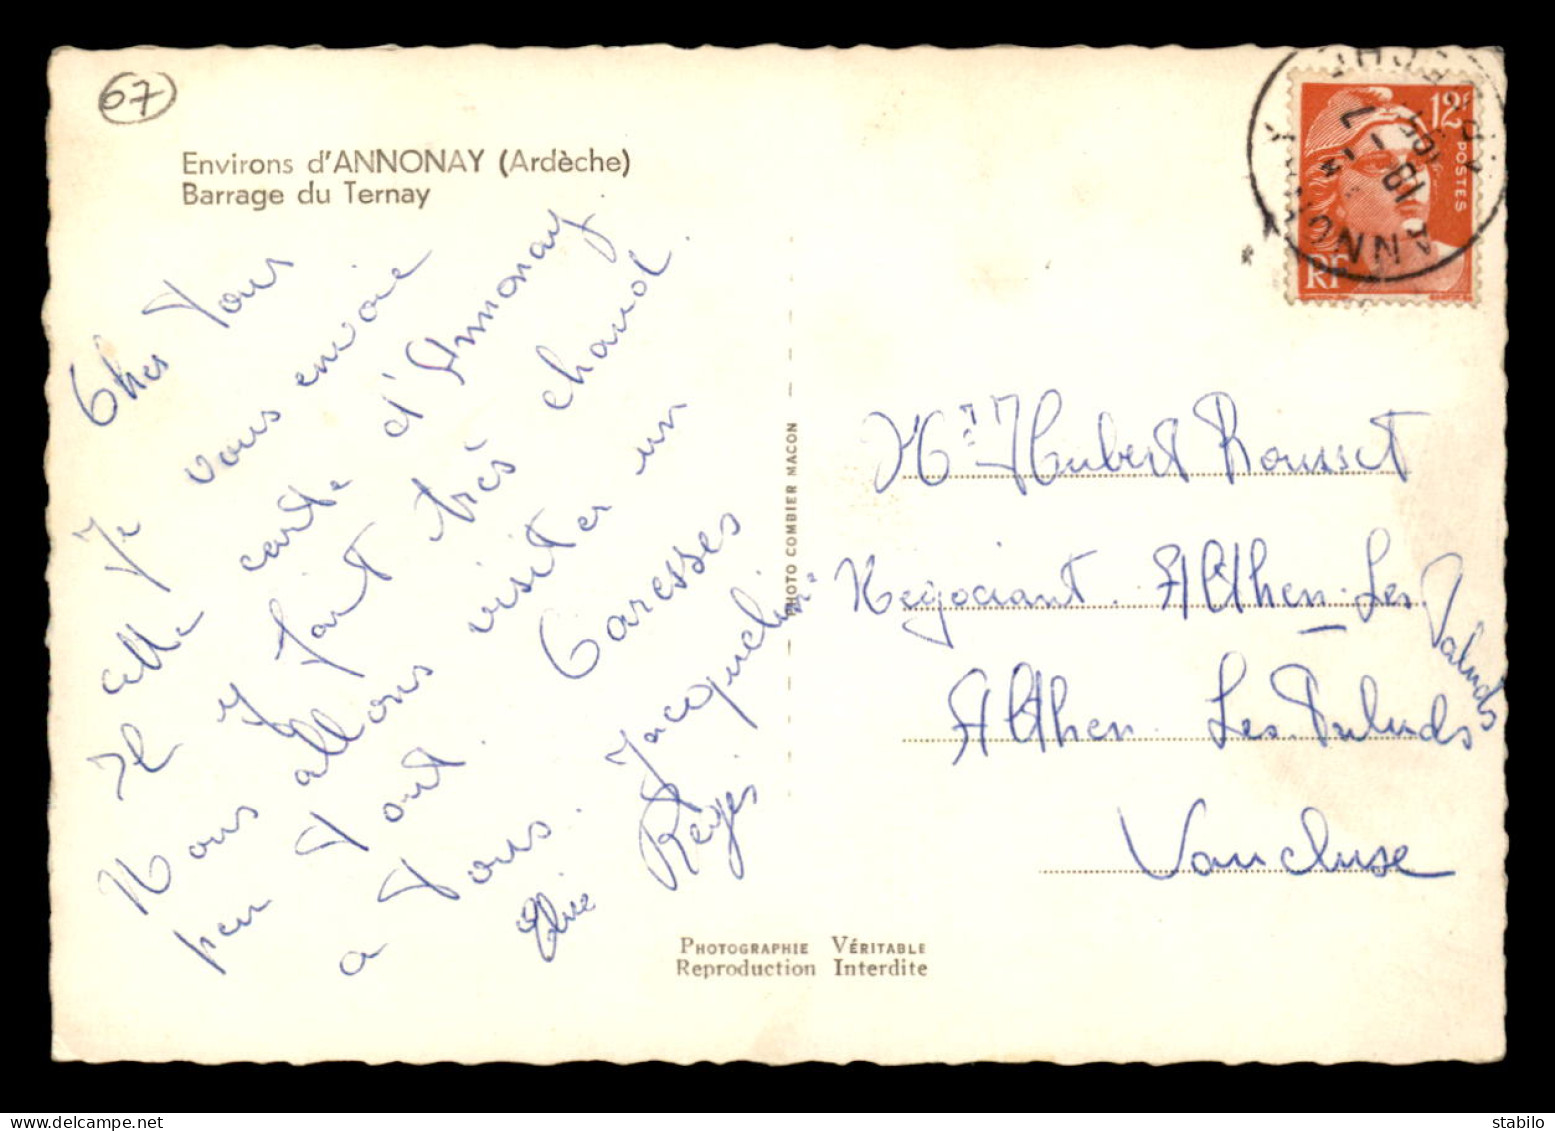 67
Environs d'ANNONAY (Ardèche)
Barrage du Ternay
Chers Tous
Je vous envoie
cette carte d'Annonay
Il y fait très chaud
Nous allons visiter un
peu tout. Caresses
a tous. Jacqueline
Elise Régis
PHOTO COMBIER MACON
PHOTOGRAPHIE VÉRITABLE
Reproduction Interdite
12F
POSTES
RF
ANNONAY
18-7
ARDECHE
Mr Hubert Rousset
Négociant. Althen-Les
Paluds
Althen-Les-Paluds
Vaucluse
stabilo